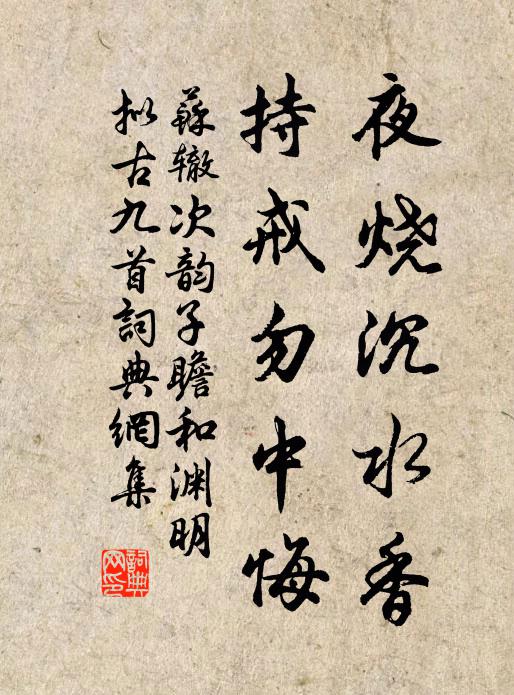 夜烧沉水香
持戒勿中悔
蘇辙次韵子瞻和渊明
拟古九首詞典網集
詞典网印